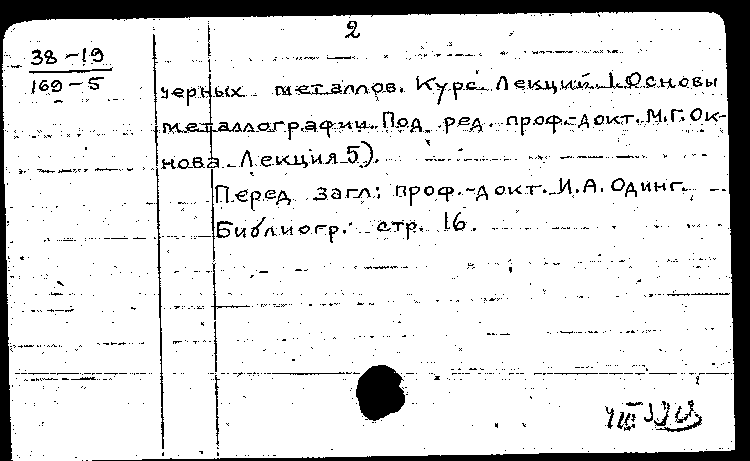 2
38-19
169-5
черных металлов. Курс Лекций. I. Основы
металлографии. Под ред. проф.-докт. М.Г. Ок-
нова. Лекция 5).
Перед загл: проф.-докт. И.А. Одинг.
Библиогр.: стр. 16.